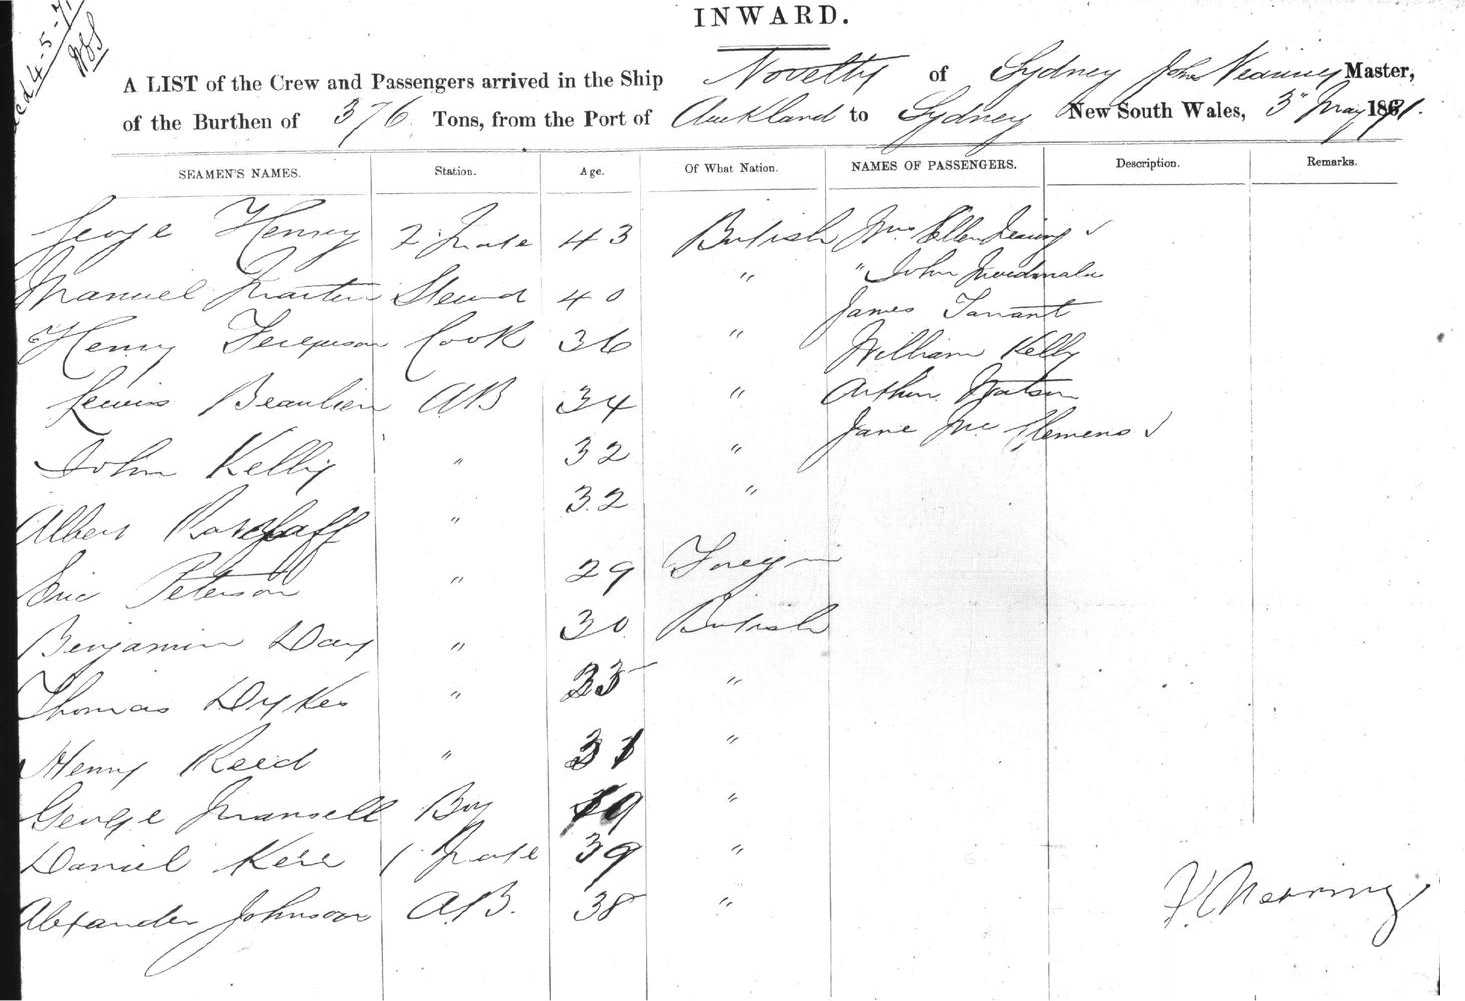 4-5-71
INWARD.
A LIST of the Crew and Passengers arrived in the Ship Novelty of Sydney John Master,
of the Burthen of 376 Tons, from the Port of Auckland to Sydney New South Wales, 3rd May 1871.
SEAMEN'S NAMES. Station. Age. Of What Nation. NAMES OF PASSENGERS. Description. Remarks.
George Henry 2 Mate 43 British Mrs Ellen
Manuel Martin Stewd 40 " " John
James Tarrant
Henry Ferguson Cook 36 " William Kelly
Lewis Beaulieu AB 34 " Arthur Watson
Jane Mc Clemens
John Kelly " 32 "
Albert " 32 "
Eric Peterson " 29 Foreign
Benjamin Day " 30 British
Thomas Dykes " 35 "
Henry Reed " 31 "
George Mansell Boy 19 "
Daniel Kerr 1 Mate 39 "
Alexander Johnson AB. 38 "